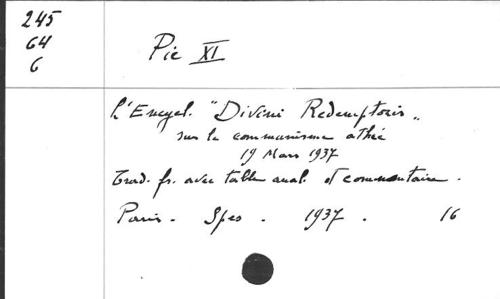 245
64
6
Pie XI
L'Encycl. "Divini Redemptoris"
sur le communisme athée
19 Mars 1937
Trad. fr. avec table anal. et commentaire.
Paris - Spes - 1937. 16